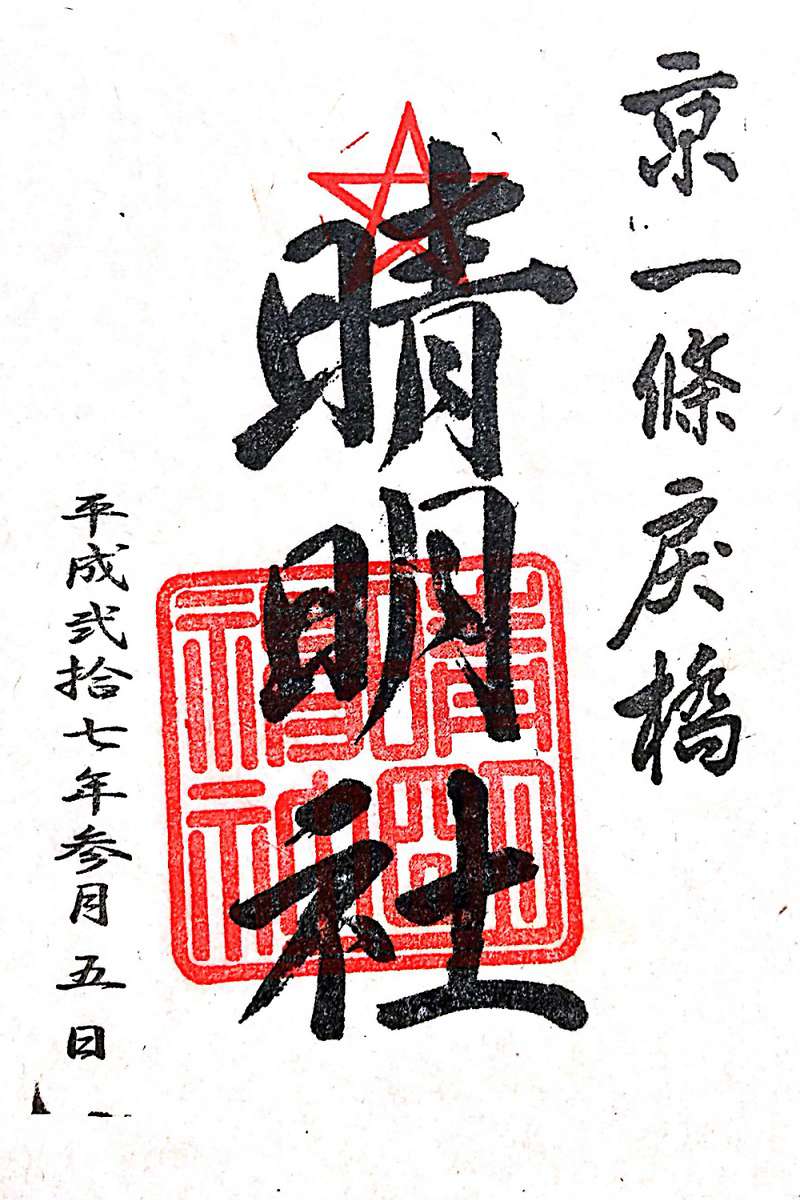 京一條戻橋
晴明社
平成弐拾七年参月五日